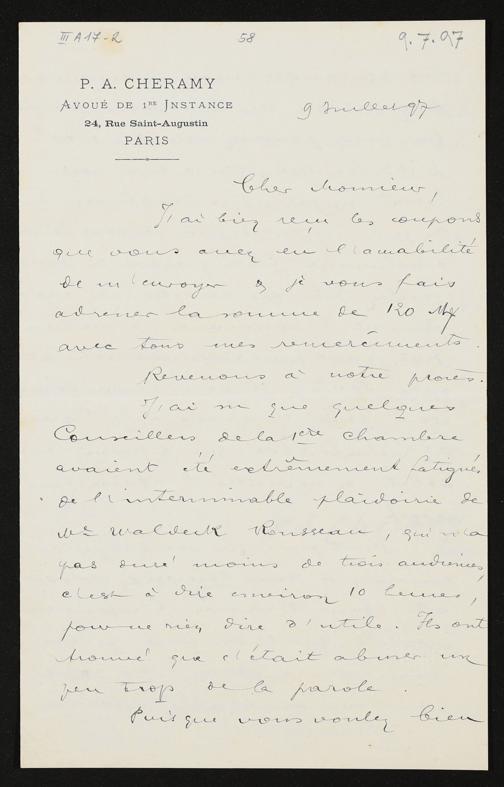 III A 17-2 58 9.7.97
P. A. CHERAMY
AVOUÉ DE 1RE INSTANCE
24, Rue Saint-Augustin
PARIS
9 Juillet 97
Cher Monsieur,
J'ai bien reçu les coupons
que vous avez eu l'amabilité
de m'envoyer & je vous fais
adresser la somme de 120 Mk
avec tous mes remerciments.
Revenons à notre procès.
J'ai su que quelques
Conseillers de la 1ère chambre
avaient été extrêmement fatigués
de l'interminable plaidoirie de
Me Waldeck Rousseau, qui n'a
pas duré moins de trois audiences,
c'est à dire environ 10 heures,
pour ne rien dire d'utile. Ils ont
trouvé que c'était abuser un
peu trop de la parole.
Puisque vous voulez bien